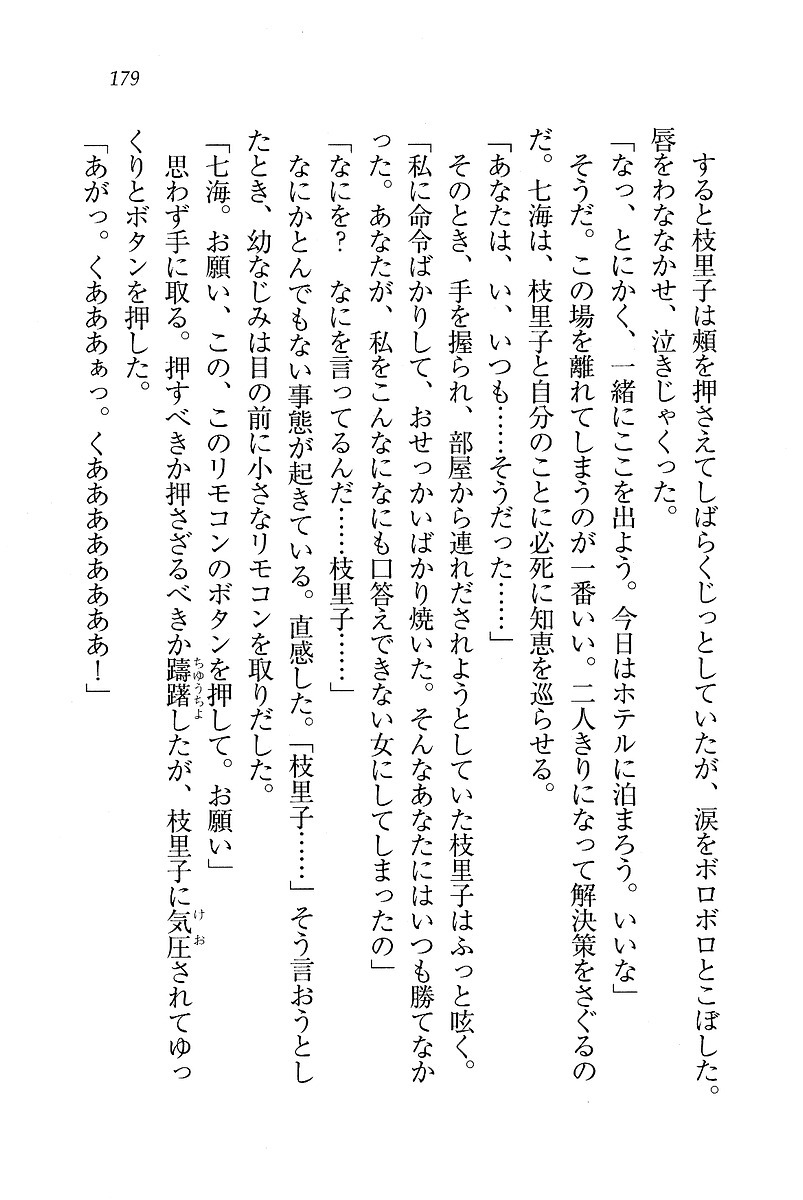 179
すると枝里子は頰を押さえてしばらくじっとしていたが、涙をボロボロとこぼした。
唇をわななかせ、泣きじゃくった。
「なっ、とにかく、一緒にここを出よう。今日はホテルに泊まろう。いいな」
そうだ。この場を離れてしまうのが一番いい。二人きりになって解決策をさぐるの
だ。七海は、枝里子と自分のことに必死に知恵を巡らせる。
「あなたは、い、いつも……そうだった……」
そのとき、手を握られ、部屋から連れだされようとしていた枝里子はふっと呟く。
「私に命令ばかりして、おせっかいばかり焼いた。そんなあなたにはいつも勝てなか
った。あなたが、私をこんなになにも口答えできない女にしてしまったの」
「なにを？　なにを言ってるんだ……枝里子……」
なにかとんでもない事態が起きている。直感した。「枝里子……」そう言おうとし
たとき、幼なじみは目の前に小さなリモコンを取りだした。
「七海。お願い、この、このリモコンのボタンを押して。お願い」
思わず手に取る。押すべきか押さざるべきか躊躇したが、枝里子に気圧されてゆっ
ちゆうちよ
けお
くりとボタンを押した。
「あがっ。くあああぁっ。くああああああああ！」